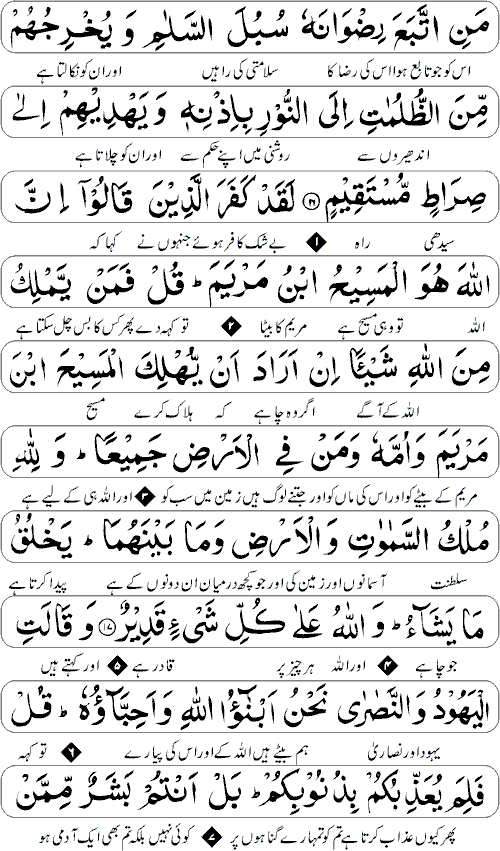 مَنِ اتَّبَعَ رِضْوَانَهٗ سُبُلَ السَّلٰمِ وَ يُخْرِجُهُمْ
اس کو جو تابع ہوا اس کی رضا کا سلامتی کی راہیں اور ان کو نکالتا ہے
مِّنَ الظُّلُمٰتِ اِلَى النُّوْرِ بِاِذْنِهٖ وَ يَهْدِيْهِمْ اِلٰى
اندھیروں سے روشنی میں اپنے حکم سے اور ان کو چلاتا ہے
صِرَاطٍ مُّسْتَقِيْمٍ ﴿۱۶﴾ لَقَدْ كَفَرَ الَّذِيْنَ قَالُوْۤا اِنَّ
سیدھی راہ ۱ بے شک کافر ہوئے جنہوں نے کہا کہ
اللّٰهَ هُوَ الْمَسِيْحُ ابْنُ مَرْيَمَ ؕ قُلْ فَمَنْ يَّمْلِكُ
اللہ تو وہی مسیح ہے مریم کا بیٹا ۲ تو کہہ دے پھر کس کا بس چل سکتا ہے
مِنَ اللّٰهِ شَيْـًٔا اِنْ اَرَادَ اَنْ يُّهْلِكَ الْمَسِيْحَ ابْنَ
اللہ کے آگے اگر وہ چاہے کہ ہلاک کرے مسیح
مَرْيَمَ وَاُمَّهٗ وَمَنْ فِي الْاَرْضِ جَمِيْعًا ؕ وَ لِلّٰهِ
مریم کے بیٹے کو اور اس کی ماں کو اور جتنے لوگ ہیں زمین میں سب کو ۳ اور اللہ ہی کے لیے ہے
مُلْكُ السَّمٰوٰتِ وَ الْاَرْضِ وَمَا بَيْنَهُمَا ؕ يَخْلُقُ
سلطنت آسمانوں اور زمین کی اور جو کچھ درمیان ان دونوں کے ہے پیدا کرتا ہے
مَا يَشَآءُ ؕ وَ اللّٰهُ عَلٰى كُلِّ شَيْءٍ قَدِيْرٌ ﴿۱۷﴾ وَ قَالَتِ
جو چاہے ۴ اور اللہ ہر چیز پر قادر ہے ۵ اور کہتے ہیں
الْيَهُوْدُ وَ النَّصٰرٰى نَحْنُ اَبْنٰٓؤُا اللّٰهِ وَ اَحِبَّآؤُهٗ ؕ قُلْ
یہود اور نصاریٰ ہم بیٹے ہیں اللہ کے اور اس کی پیارے ۶ تو کہہ
فَلِمَ يُعَذِّبُكُمْ بِذُنُوْبِكُمْ ؕ بَلْ اَنْتُمْ بَشَرٌ مِّمَّنْ
پھر کیوں عذاب کرتا ہے تم کو تمہارے گناہوں پر ۷ کوئی نہیں بلکہ تم بھی ایک آدمی ہو